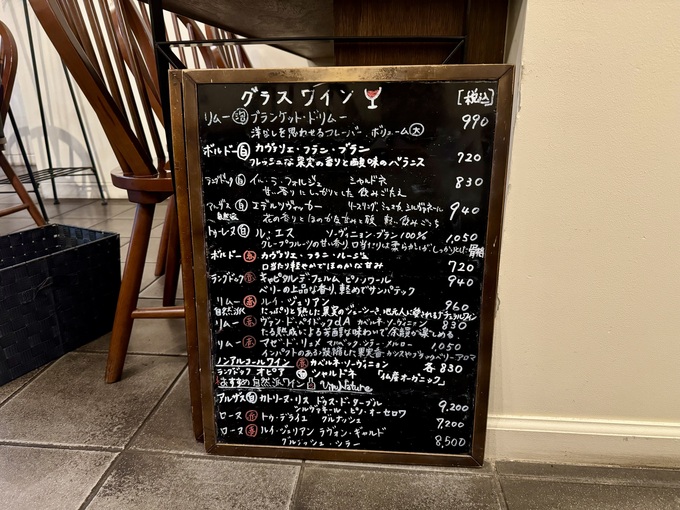 グラスワイン [税込]
リムー 泡 ブランケット・ド・リムー 990
洋なしを思わせるフレーバー、ボリューム大
ボルドー 白 カヴァリエ・フラン・ブラン 720
フレッシュな果実の香りと酸味のバランス
ラングドック 白 イル・ラ・フォルジュ シャルドネ 830
甘い香りにしっかりとした飲みごたえ
アルザス 白 エデルツヴィッカー リースリング 940
自然派 花の香りとほのかな甘みと酸
トゥーレーヌ 白 ル・エス ソーヴィニョン・ブラン 100% 1,050
グレープフルーツの甘い香り 口当たりは柔らかいが しっかりとした骨格
ボルドー 赤 カヴァリエ・フラン・ルージュ 720
口当たり軽やかでほのかな甘み
ラングドック 赤 キャピタルデフェルム ピノノワール 940
ベリーの上品な香り、軽めでサンパテック
リムー 赤 ルイ・ジュリアン 960
自然派 たっぷりと熟した果実のジューシーさ、地元人に愛されるナチュラルワイン
リムー 赤 ヴァン・ド・ペイドック dA カベルネ・ソーヴィニョン 830
たる熟成による芳醇な味わいで余韻が楽しめる
リムー 赤 マルベック・シラー・メルロー 1050
インパクトのある凝縮した果実香 カシスやブラックベリーアロマ
ノンアルコールワイン 赤 カベルネ・ソーヴィニョン
ラングドック オピア 白 シャルドネ 「仏産オーガニック」 各830
おすすめ自然派ワイン Vin Nature
アルザス 白 カトリーヌ・リス ドゥス・ド・ターブル 9,200
シルヴァネール・ピノ・オーセロワ
ローヌ 赤 トゥ・デライエ グルナッシュ 7,200
ローヌ 赤 ルイ・ジュリアン ラヴォン・ギャルド 8,500
グルナッシュ・シラー